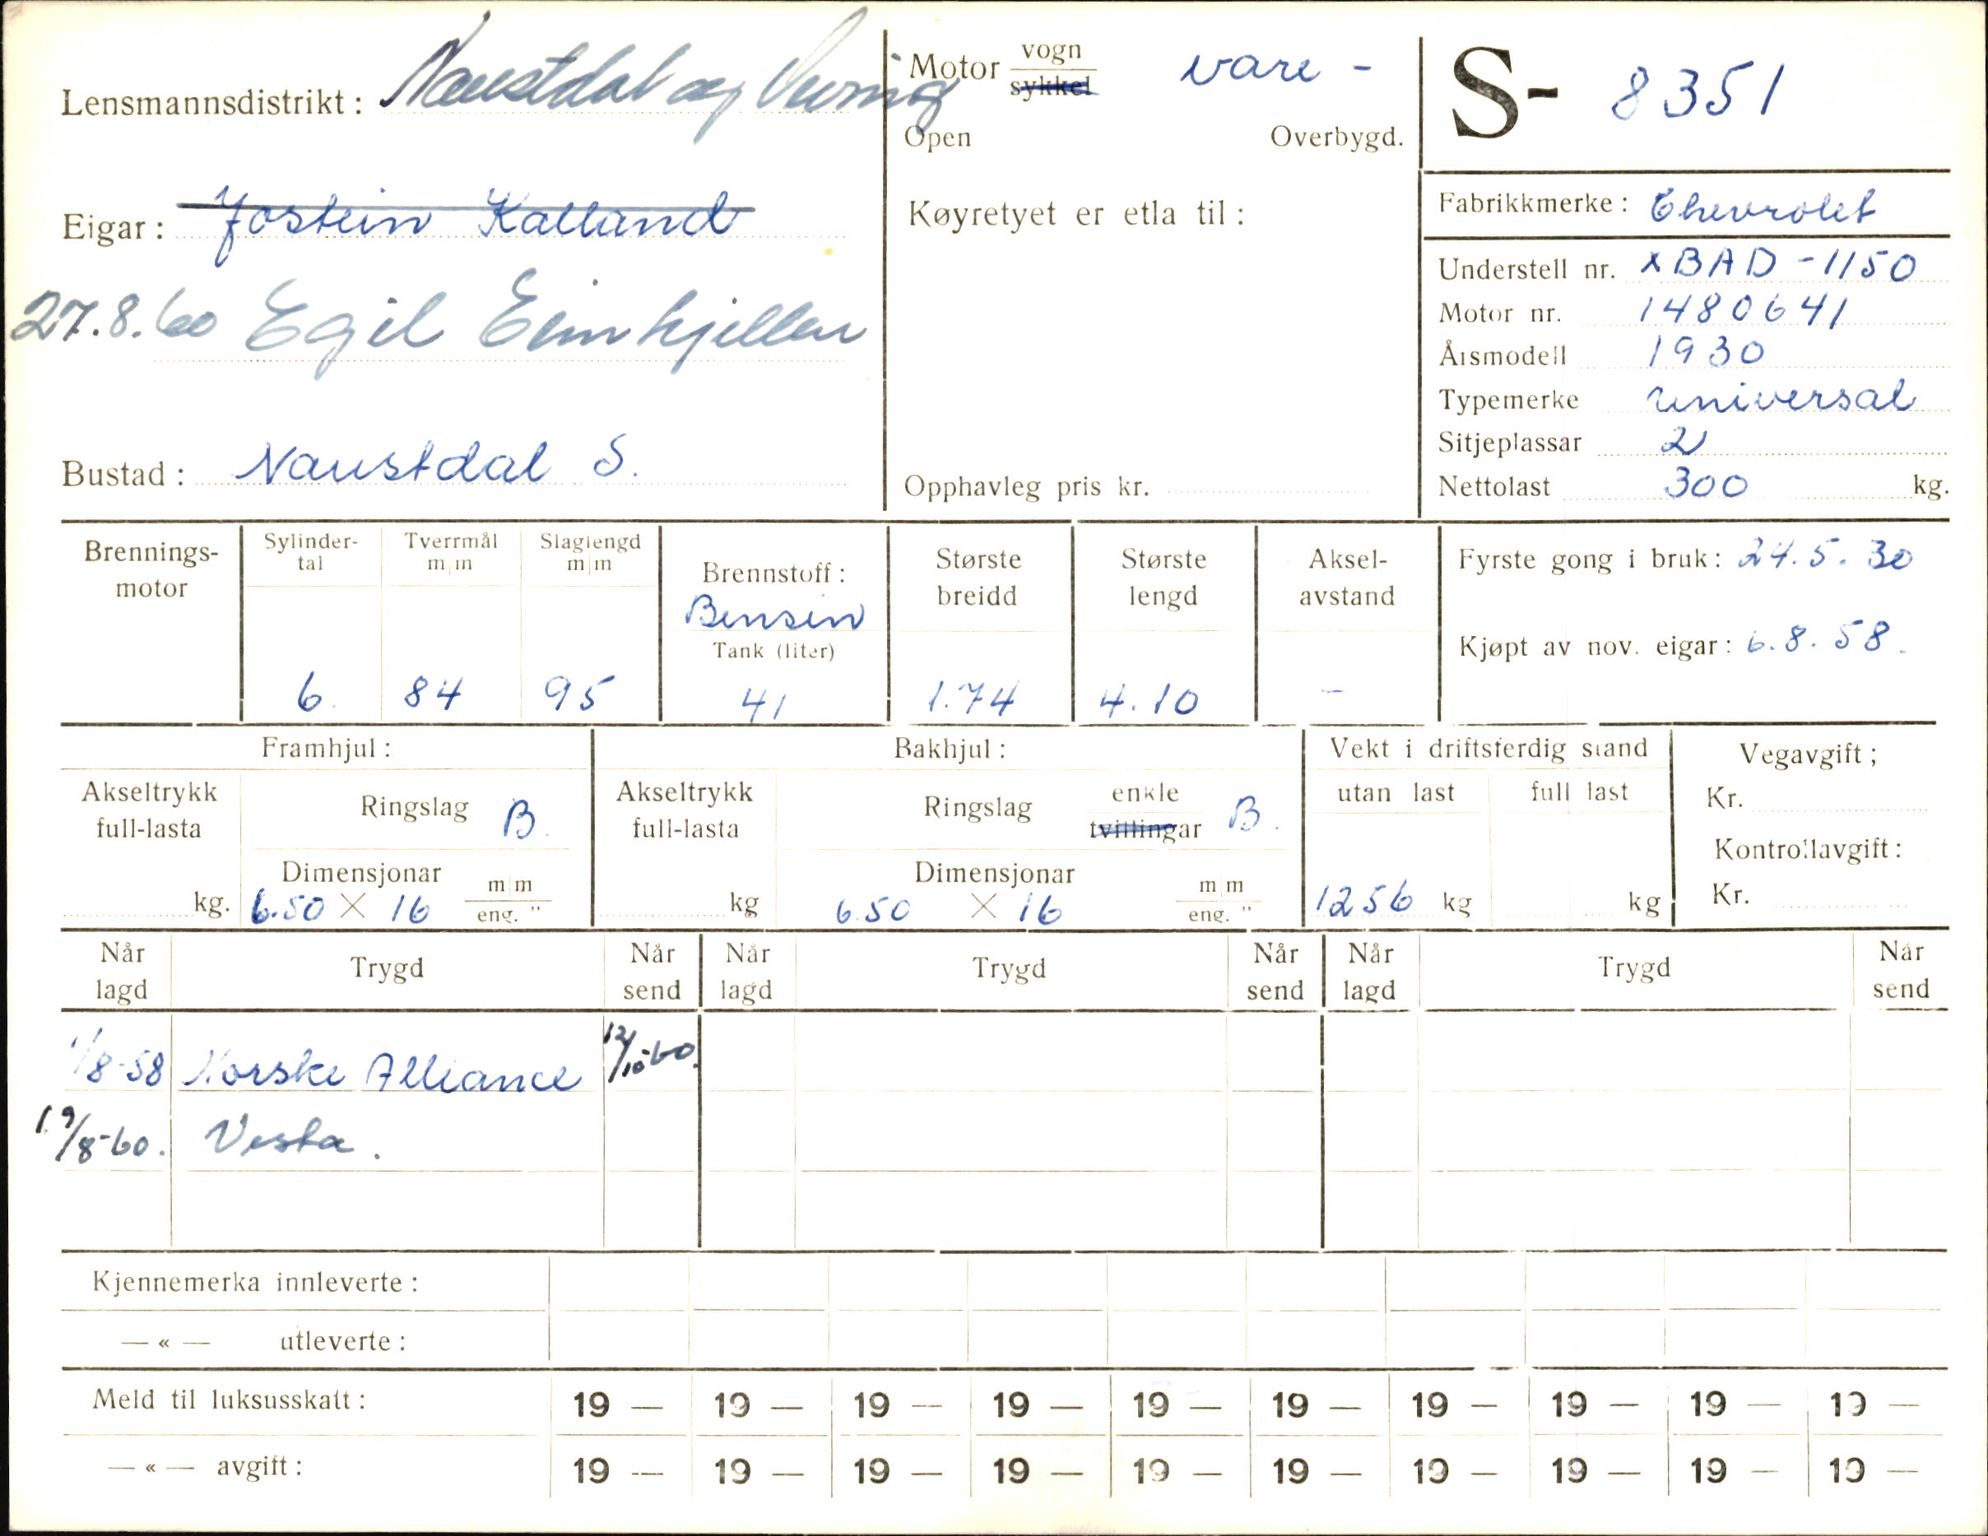 Lensmannsdistrikt: Naustdal og Vevring
Eigar: Jostein Kalland
27.8.60 Egil Eimhjellen
Bustad: Naustdal S.
Motor vogn vare -
sykkel
Open Overbygd.
Køyretyet er etla til:
Opphavleg pris kr.
S- 8351
Fabrikkmerke: Chevrolet
Understell nr. xBAD-1150
Motor nr. 1480641
Årsmodell 1930
Typemerke universal
Sitjeplassar 2
Nettolast 300 kg.
Brennings-
motor
Sylinder-
tal
6.
Tverrmål
m/m
84
Slaglengd
m/m
95
Brennstoff:
Bensin
Tank (liter)
41
Største
breidd
1.74
Største
lengd
4.10
Aksel-
avstand
-
Fyrste gong i bruk: 24.5.30
Kjøpt av nov. eigar: 6.8.58.
Framhjul:
Akseltrykk
full-lasta
kg.
Ringslag B.
Dimensjonar
6.50 X 16 m/m
eng. "
Bakhjul:
Akseltrykk
full-lasta
kg
Ringslag enkle B.
tvillingar
Dimensjonar
6.50 X 16 m/m
eng. "
Vekt i driftsferdig stand
utan last full last
1256 kg kg
Vegavgift;
Kr.
Kontrollavgift:
Kr.
Når lagd Trygd Når send Når lagd Trygd Når send Når lagd Trygd Når send
1/8-58 Norske Alliance 12/10-60.
19/8-60. Vesta.
Kjennemerka innleverte:
— « — utleverte:
Meld til luksusskatt: 19 — 19 — 19 — 19 — 19 — 19 — 19 — 19 — 19 — 19 —
— « — avgift: 19 — 19 — 19 — 19 — 19 — 19 — 19 — 19 — 19 — 19 —